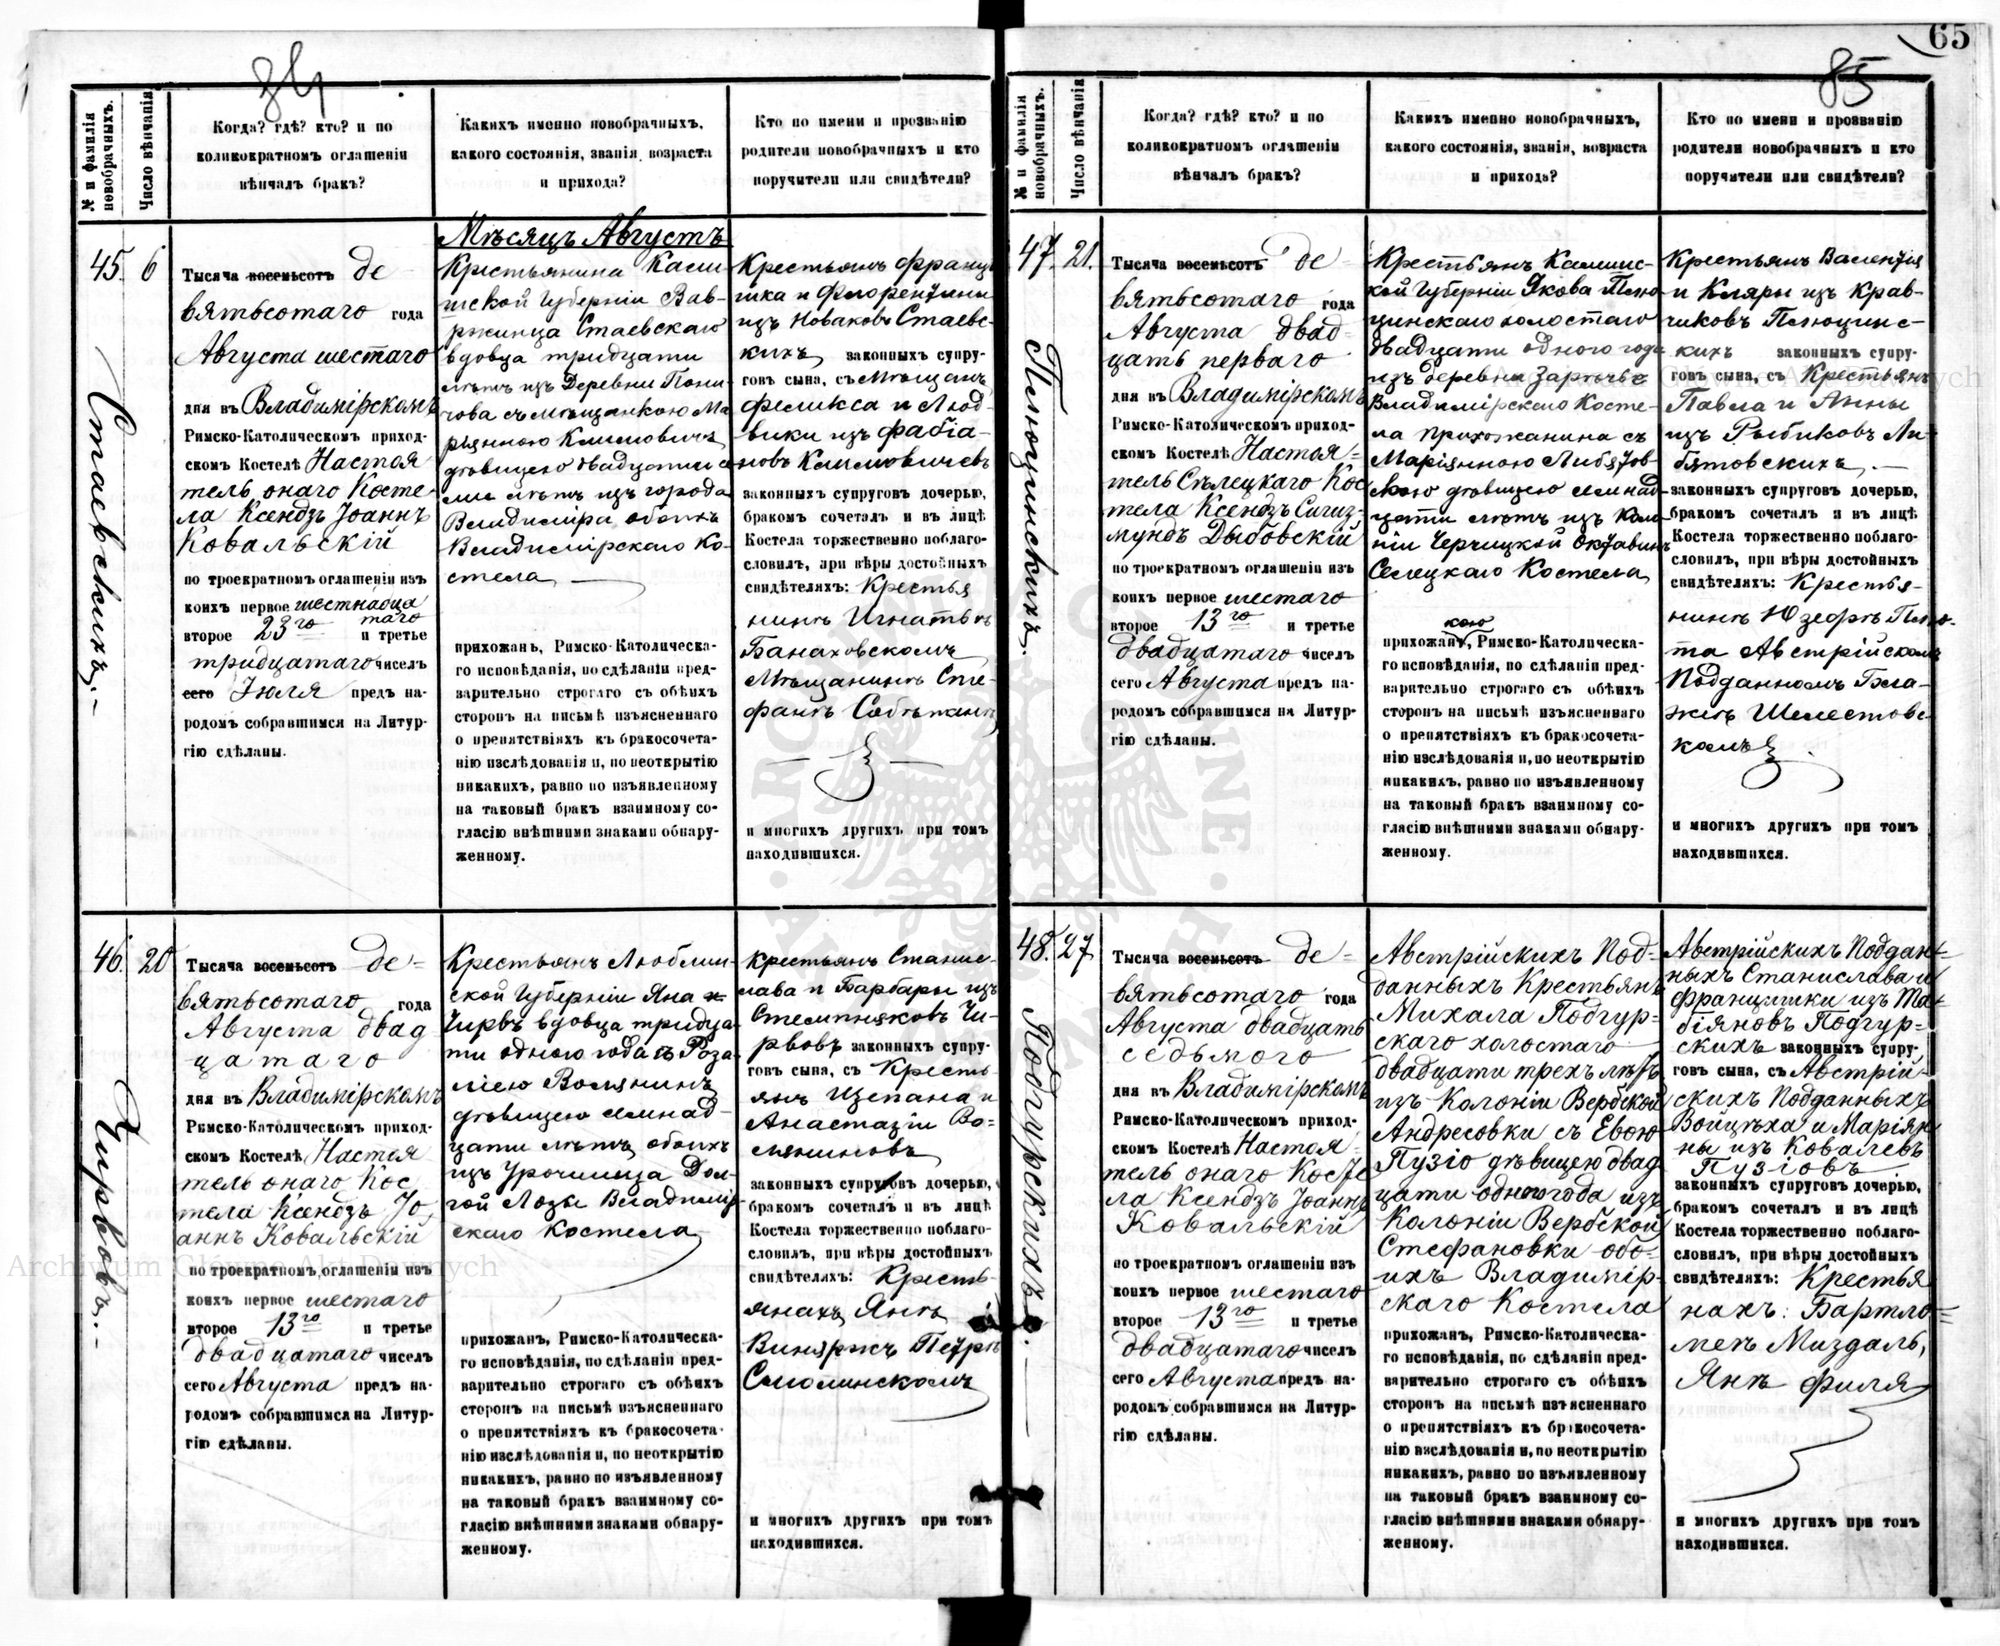 84
№ и фамилія новобрачныхъ.
Число вѣнчанія
Когда? гдѣ? кто? и по
коликократномъ оглашеніи
вѣнчалъ бракъ?
Какихъ именно новобрачныхъ,
какого состоянія, званія, возраста
и прихода?
Кто по имени и прозванію
родители новобрачныхъ и кто
поручители или свидѣтели?
45.
6
Стаевскихъ.
Тысяча восемьсотъ де
вятьсотаго года
Августа шестаго
дня въ Владимірскомъ
Римско-Католическомъ приход-
скомъ Костелѣ Настоя
тель онаго Косте-
ла Ксендзъ Іоаннъ
Ковальскій
по троекратномъ оглашеніи изъ
коихъ первое шестнадца
таго
второе 23го и третье
тридцатаго чиселъ
сего Іюля предъ на-
родомъ собравшимся на Литур-
гію сдѣланы.
Мѣсяцъ Августъ
Крестьянина Кали
шской Губерніи Вав-
ржинца Стаевскаго
вдовца тридцати
лѣтъ изъ Деревни Пони-
чова съ мѣщанкою Ма
ріанною Климовичъ
дѣвицею двадцати се
ми лѣтъ изъ города
Владиміра обоихъ
Владимірскаго Ко-
стела
прихожанъ, Римско-Католическа-
го исповѣданія, по сдѣланіи пред-
варительно строгаго съ обѣихъ
сторонъ на письмѣ изъясненнаго
о препятствіяхъ къ бракосочета-
нію изслѣдованія и, по неоткрытію
никакихъ, равно по изъявленному
на таковый бракъ взаимному со-
гласію внѣшними знаками обнару-
женному.
Крестьянъ Франц
ишка и Флорентины
изъ Новаковъ Стаевс-
кихъ законныхъ супру-
говъ сына, съ Мѣщанъ
Феликса и Люд-
вики изъ Фабіа-
новъ Климовичевъ
законныхъ супруговъ дочерью,
бракомъ сочеталъ и въ лицѣ
Костела торжественно поблаго-
словилъ, при вѣры достойныхъ
свидѣтеляхъ: Крестья
нинѣ Игнатѣѣ
Банаховскомъ
Мѣщанинѣ Сте-
фанѣ Собѣжанѣ
и многихъ другихъ при томъ
находившихся.
46.
20
Чирвовъ.
Тысяча восемьсотъ де-
вятьсотаго года
Августа двад
цатаго
дня въ Владимірскомъ
Римско-Католическомъ приход-
скомъ Костелѣ Настоя
тель онаго Кос
тела Ксендзъ Іо-
аннъ Ковальскій
по троекратномъ оглашеніи изъ
коихъ первое шестаго
второе 13го и третье
двадцатаго чиселъ
сего Августа предъ на-
родомъ собравшимся на Литур-
гію сдѣланы.
Крестьянъ Люблин-
ской Губерніи Яна
Чирвъ вдовца тридца-
ти одного года съ Роза
ліею Волянинъ
дѣвицею семнад-
цати лѣтъ обоихъ
изъ Урочища Дол-
гой Лозы Владимір
скаго Костела
прихожанъ, Римско-Католическа-
го исповѣданія, по сдѣланіи пред-
варительно строгаго съ обѣихъ
сторонъ на письмѣ изъясненнаго
о препятствіяхъ къ бракосочета-
нію изслѣдованія и, по неоткрытію
никакихъ, равно по изъявленному
на таковый бракъ взаимному со-
гласію внѣшними знаками обнару-
женному.
Крестьянъ Станис-
лава и Барбары изъ
Стемпняковъ Чи-
рвовъ законныхъ супру-
говъ сына, съ Кресть-
янъ Щепана и
Анастазіи Во-
ляниновъ
законныхъ супруговъ дочерью,
бракомъ сочеталъ и въ лицѣ
Костела торжественно поблаго-
словилъ, при вѣры достойныхъ
свидѣтеляхъ: Кресть-
янахъ Янѣ
Виняржъ Петрѣ
Смолинскомъ
и многихъ другихъ при томъ
находившихся.
65
85
№ и фамилія новобрачныхъ.
Число вѣнчанія
Когда? гдѣ? кто? и по
коликократномъ оглашеніи
вѣнчалъ бракъ?
Какихъ именно новобрачныхъ,
какого состоянія, званія, возраста
и прихода?
Кто по имени и прозванію
родители новобрачныхъ и кто
поручители или свидѣтели?
47.
21.
Пелюцинскихъ.
Тысяча восемьсотъ де-
вятьсотаго года
Августа двад-
цать перваго
дня въ Владимірскомъ
Римско-Католическомъ приход-
скомъ Костелѣ Настоя-
тель Сѣлецкаго Кос
тела Ксендзъ Сигиз-
мундъ Дыбовскій
по троекратномъ оглашеніи изъ
коихъ первое шестаго
второе 13го и третье
двадцатаго чиселъ
сего Августа предъ на-
родомъ собравшимся на Литур-
гію сдѣланы.
Крестьянъ Калишс-
кой Губерніи Якова Пелю-
цинскаго холостаго
двадцати одного года
изъ деревни Зарѣчье
Владимірскаго Косте-
ла прихожанина съ
Маріанною Либятов-
скою дѣвицею семнад-
цати лѣтъ изъ Коло
ніи Черчицкой Октавинъ
Селецкаго Костела
кою
прихожанъ, Римско-Католическа-
го исповѣданія, по сдѣланіи пред-
варительно строгаго съ обѣихъ
сторонъ на письмѣ изъясненнаго
о препятствіяхъ къ бракосочета-
нію изслѣдованія и, по неоткрытію
никакихъ, равно по изъявленному
на таковый бракъ взаимному со-
гласію внѣшними знаками обнару-
женному.
Крестьянъ Валентія
и Кляры изъ Крав-
чиковъ Пелюцинс-
кихъ законныхъ супру-
говъ сына, съ Крестьянъ
Павла и Анны
изъ Рыбиковъ Ли-
бятовскихъ
законныхъ супруговъ дочерью,
бракомъ сочеталъ и въ лицѣ
Костела торжественно поблаго-
словилъ, при вѣры достойныхъ
свидѣтеляхъ: Крестья-
нинѣ Юзефѣ Пело-
та Австрійскомъ
Подданномъ Бла-
жеѣ Шелестовс-
комъ
и многихъ другихъ при томъ
находившихся.
48.
27
Подгурскихъ.
Тысяча восемьсотъ де-
вятьсотаго года
Августа двадцать
седьмого
дня въ Владимірскомъ
Римско-Католическомъ приход-
скомъ Костелѣ Настоя-
тель онаго Косте
ла Ксендзъ Іоаннъ
Ковальскій
по троекратномъ оглашеніи изъ
коихъ первое шестаго
второе 13го и третье
двадцатаго чиселъ
сего Августа предъ на-
родомъ собравшимся на Литур-
гію сдѣланы.
Австрійскихъ Под-
данныхъ Крестьянъ
Михала Подгур-
скаго холостаго
двадцати трехъ лѣтъ
изъ Колоніи Вербской
Андресовки съ Евою
Пузіо дѣвицею двад
цати одного года изъ
Колоніи Вербской
Стефановки обо-
ихъ Владимір-
скаго Костела
прихожанъ, Римско-Католическа-
го исповѣданія, по сдѣланіи пред-
варительно строгаго съ обѣихъ
сторонъ на письмѣ изъясненнаго
о препятствіяхъ къ бракосочета-
нію изслѣдованія и, по неоткрытію
никакихъ, равно по изъявленному
на таковый бракъ взаимному со-
гласію внѣшними знаками обнару-
женному.
Австрійскихъ Поддан-
ныхъ Станислава и
Францишки изъ Ма-
біяновъ Подгур-
скихъ законныхъ супру-
говъ сына, съ Австрій-
скихъ Подданныхъ
Войцѣха и Маріян
ны изъ Ковалевъ
Пузіовъ
законныхъ супруговъ дочерью,
бракомъ сочеталъ и въ лицѣ
Костела торжественно поблаго-
словилъ, при вѣры достойныхъ
свидѣтеляхъ: Крестья
нахъ: Бартло-
меѣ Миздаль,
Янѣ Филя
и многихъ другихъ при томъ
находившихся.
Archiwum Główne Akt Dawnych
Archiwum Główne Akt Dawnych